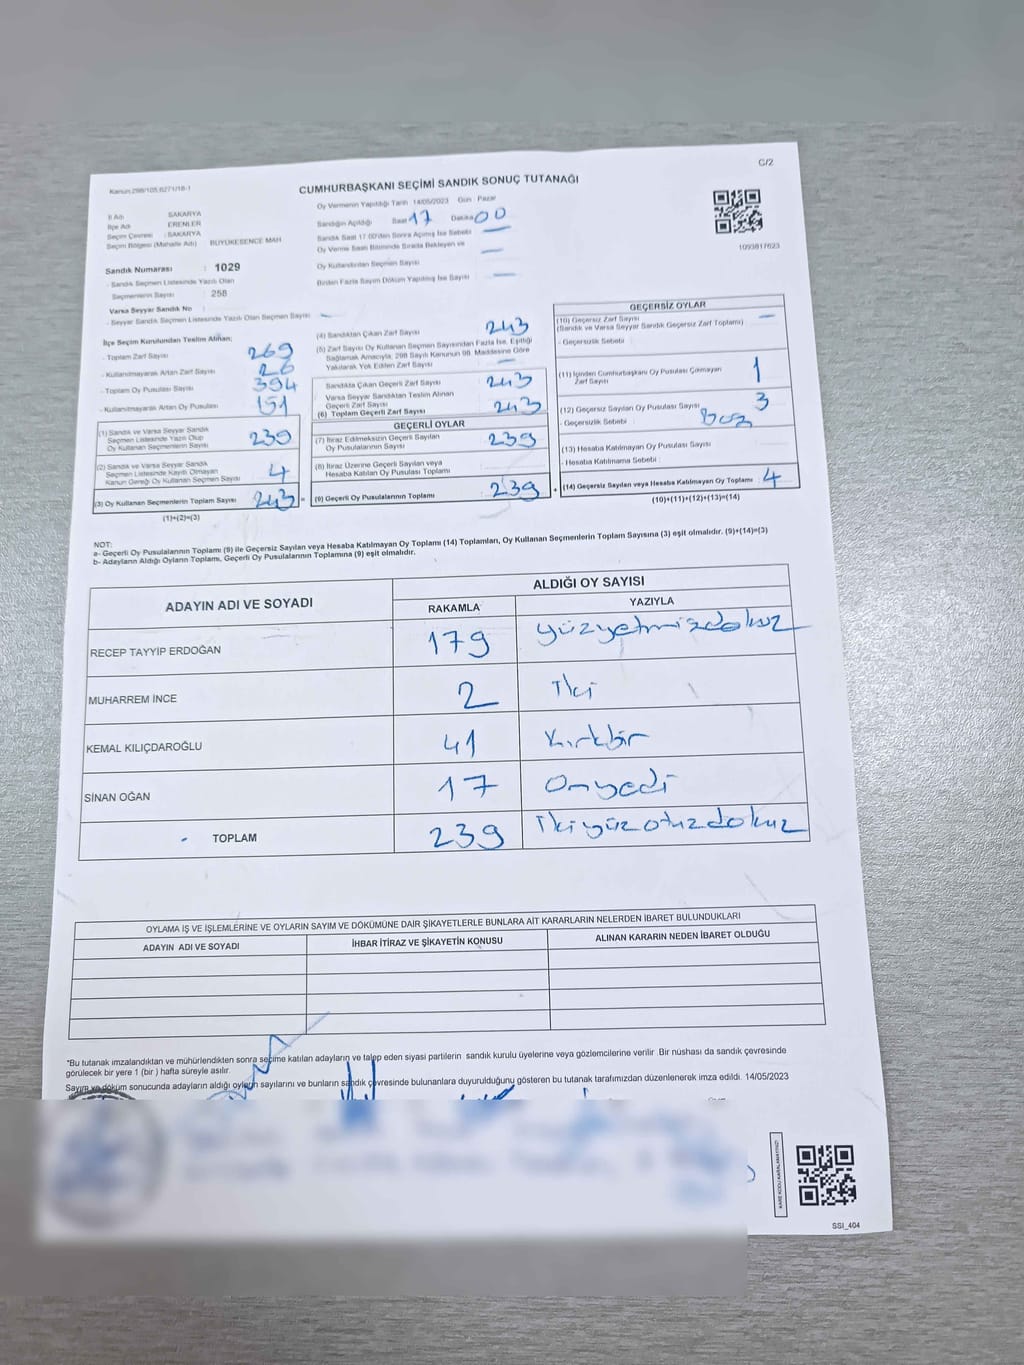 C/2
Kanun 298/105.6271/18-1
CUMHURBAŞKANI SEÇİMİ SANDIK SONUÇ TUTANAĞI
Oy Vermenin Yapıldığı Tarih 14/05/2023 Gün : Pazar
İl Adı SAKARYA
İlçe Adı ERENLER
Seçim Çevresi : SAKARYA
Seçim Bölgesi (Mahalle Adı) BÜYÜKESENCE MAH
Sandık Numarası : 1029
- Sandık Seçmen Listesinde Yazılı Olan
Seçmenlerin Sayısı : 258
Varsa Seyyar Sandık No :
- Seyyar Sandık Seçmen Listesinde Yazılı Olan Seçmen Sayısı -
Sandığın Açıldığı Saat 17 Dakika 00
Sandık Saat 17:00'den Sonra Açılmış İse Sebebi -
Oy Verme Saati Bitiminde Sırada Bekleyen ve
Oy Kullandırılan Seçmen Sayısı -
Birden Fazla Sayım Döküm Yapılmış İse Sayısı -
1093817623
İlçe Seçim Kurulundan Teslim Alınan;
- Toplam Zarf Sayısı 269
- Kullanılmayarak Artan Zarf Sayısı 26
- Toplam Oy Pusulası Sayısı 394
- Kullanılmayarak Artan Oy Pusulası 151
(1) Sandık ve Varsa Seyyar Sandık
Seçmen Listesinde Yazılı Olup
Oy Kullanan Seçmenlerin Sayısı 239
(2) Sandık ve Varsa Seyyar Sandık
Seçmen Listesinde Kayıtlı Olmayan
Kanun Gereği Oy Kullanan Seçmen Sayısı 4
(3) Oy Kullanan Seçmenlerin Toplam Sayısı 243 =
(1)+(2)=(3)
(4) Sandıktan Çıkan Zarf Sayısı 243
(5) Zarf Sayısı Oy Kullanan Seçmen Sayısından Fazla İse, Eşitliği
Sağlamak Amacıyla, 298 Sayılı Kanunun 98. Maddesine Göre
Yakılarak Yok Edilen Zarf Sayısı -
Sandıkta Çıkan Geçerli Zarf Sayısı 243
Varsa Seyyar Sandıktan Teslim Alınan
Geçerli Zarf Sayısı
(6) Toplam Geçerli Zarf Sayısı 243
GEÇERLİ OYLAR
(7) İtiraz Edilmeksizin Geçerli Sayılan
Oy Pusulalarının Sayısı 239
(8) İtiraz Üzerine Geçerli Sayılan veya
Hesaba Katılan Oy Pusulası Toplamı
(9) Geçerli Oy Pusulalarının Toplamı 239 +
GEÇERSİZ OYLAR
(10) Geçersiz Zarf Sayısı -
(Sandık ve Varsa Seyyar Sandık Geçersiz Zarf Toplamı)
- Geçersizlik Sebebi :
(11) İçinden Cumhurbaşkanı Oy Pusulası Çıkmayan
Zarf Sayısı 1
(12) Geçersiz Sayılan Oy Pusulası Sayısı 3
- Geçersizlik Sebebi :
(13) Hesaba Katılmayan Oy Pusulası Sayısı
- Hesaba Katılmama Sebebi :
(14) Geçersiz Sayılan veya Hesaba Katılmayan Oy Toplamı 4
(10)+(11)+(12)+(13)=(14)
NOT:
a- Geçerli Oy Pusulalarının Toplamı (9) ile Geçersiz Sayılan veya Hesaba Katılmayan Oy Toplamı (14) Toplamları, Oy Kullanan Seçmenlerin Toplam Sayısına (3) eşit olmalıdır. (9)+(14)=(3)
b- Adayların Aldığı Oyların Toplamı, Geçerli Oy Pusulalarının Toplamına (9) eşit olmalıdır.
ADAYIN ADI VE SOYADI
ALDIĞI OY SAYISI
RAKAMLA YAZIYLA
RECEP TAYYİP ERDOĞAN 179 yüzyetmişdokuz
MUHARREM İNCE 2 İki
KEMAL KILIÇDAROĞLU 41 Kırkbir
SİNAN OĞAN 17 Onyedi
- TOPLAM 239 İkiyüzotuzdokuz
OYLAMA İŞ VE İŞLEMLERİNE VE OYLARIN SAYIM VE DÖKÜMÜNE DAİR ŞİKAYETLERLE BUNLARA AİT KARARLARIN NELERDEN İBARET BULUNDUKLARI
ADAYIN ADI VE SOYADI İHBAR İTİRAZ VE ŞİKAYETİN KONUSU ALINAN KARARIN NEDEN İBARET OLDUĞU
*Bu tutanak imzalandıktan ve mühürlendikten sonra seçime katılan adayların ve talep eden siyasi partilerin sandık kurulu üyelerine veya gözlemcilerine verilir. Bir nüshası da sandık çevresinde
görülecek bir yere 1 (bir ) hafta süreyle asılır.
Sayım ve döküm sonucunda adayların aldığı oyların sayılarını ve bunların sandık çevresinde bulunanlara duyurulduğunu gösteren bu tutanak tarafımızdan düzenlenerek imza edildi. 14/05/2023
SSI_404